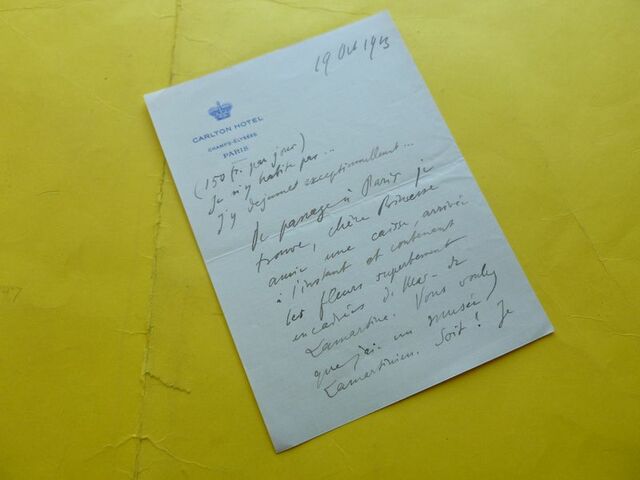 19 Oct 1913
CARLTON HOTEL
CHAMPS-ÉLYSÉES
PARIS
(150 fr. par jour)
Je n'y habite pas...
j'y déjeunet exceptionnellemt...
De passage à Paris je
trouve, chère Princesse
amie une caisse, arrivée
à l'instant et contenant
les fleurs superbement
encadrées de
Lamartine. Vous voulez
que j'aie un musée
Lamartinien. Soit! Je